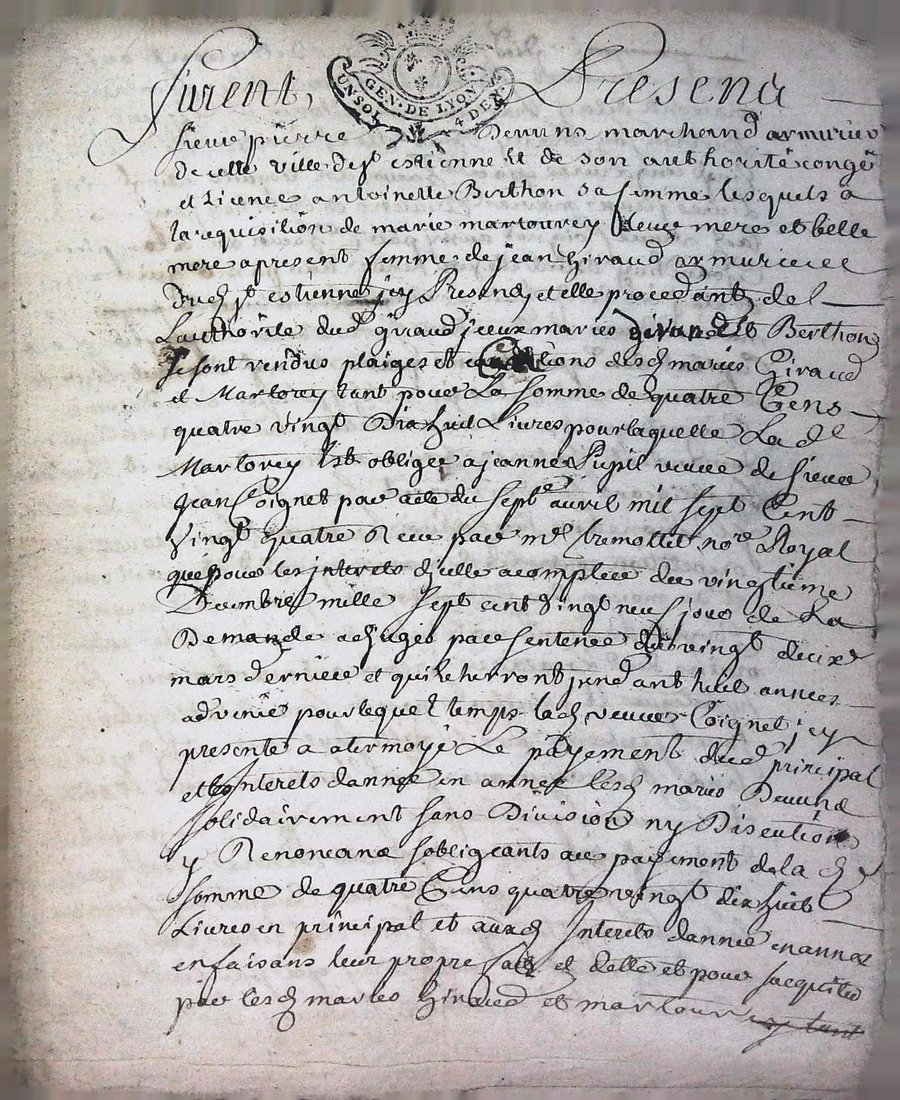 GEN. DE LYON
UN SOL 4 DEN.
Furent, Presend
sieur pierre Devuns marchand armurier
de cette ville de st estienne et de son authorité congé
et licence antoinette Berthon sa femme lesquels a
la requisition de marie martourey leurs mere et belle
mere apresent femme de jean Giraud armurier
dud st estienne jcy Presend et elle procedant de l
Lauthorite dud giraud jceux maries et Berthon
se sont rendus plaiges et cautions desd maries Giraud
et Martorey tant pour La somme de quatre Cens
quatre vingt Dixhuit Livres pour laquelle La de
Martorey sest obligee a jeanne Pupil veuve de sieur
jean Coignet par acte du sept avril mil sept Cent
Vingt quatre Receu par me tremollet nore Royal
que pour les interets dicelle a compter du vingtieme
Decembre mille sept cent vingt neuf jour de La
Demande adjugés par sentence du vingt deuxe
mars dernier et qui cherront pendant huit annees
advenir pour lequel temps lad veuve Coignet jcy
presente a atermoyé Le payement dud principal
et interets dannee en annee lesd maries Devuns
solidairement sans Division ny Discution
y Renonceans sobligeants au payement de la d
somme de quatre Cens quatre vingt dixhuit
Livres en principal et auxd Interets dannee en annee
en faisans leur propre fait et dette et pour sacquittes
par lesd maries Giraud et martourey tant